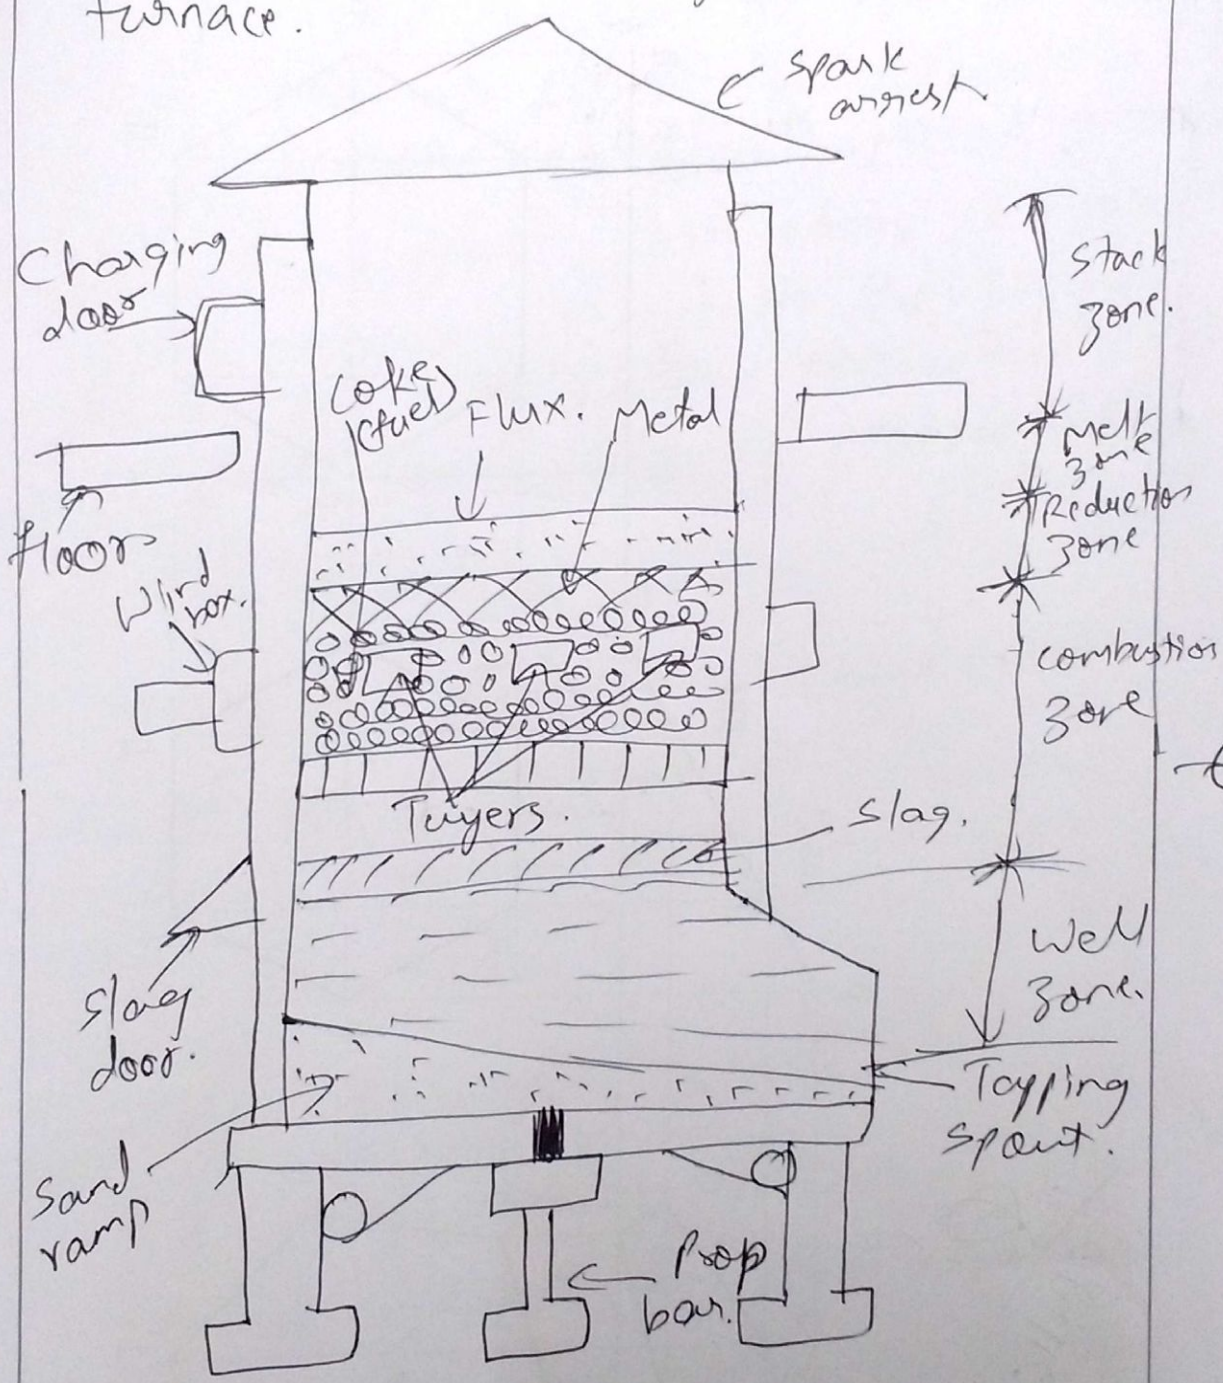 furnace.
Spark
arrest.
Charging
door
Stack
zone.
Coke
(fuel)
Flux.
Metal
Melt
zone
Reduction
zone
floor
Wind
box.
combustion
zone
Tuyers.
Slag.
Well
zone.
Slag
door.
Tapping
spout.
Sand
ramp
Prop
bar.